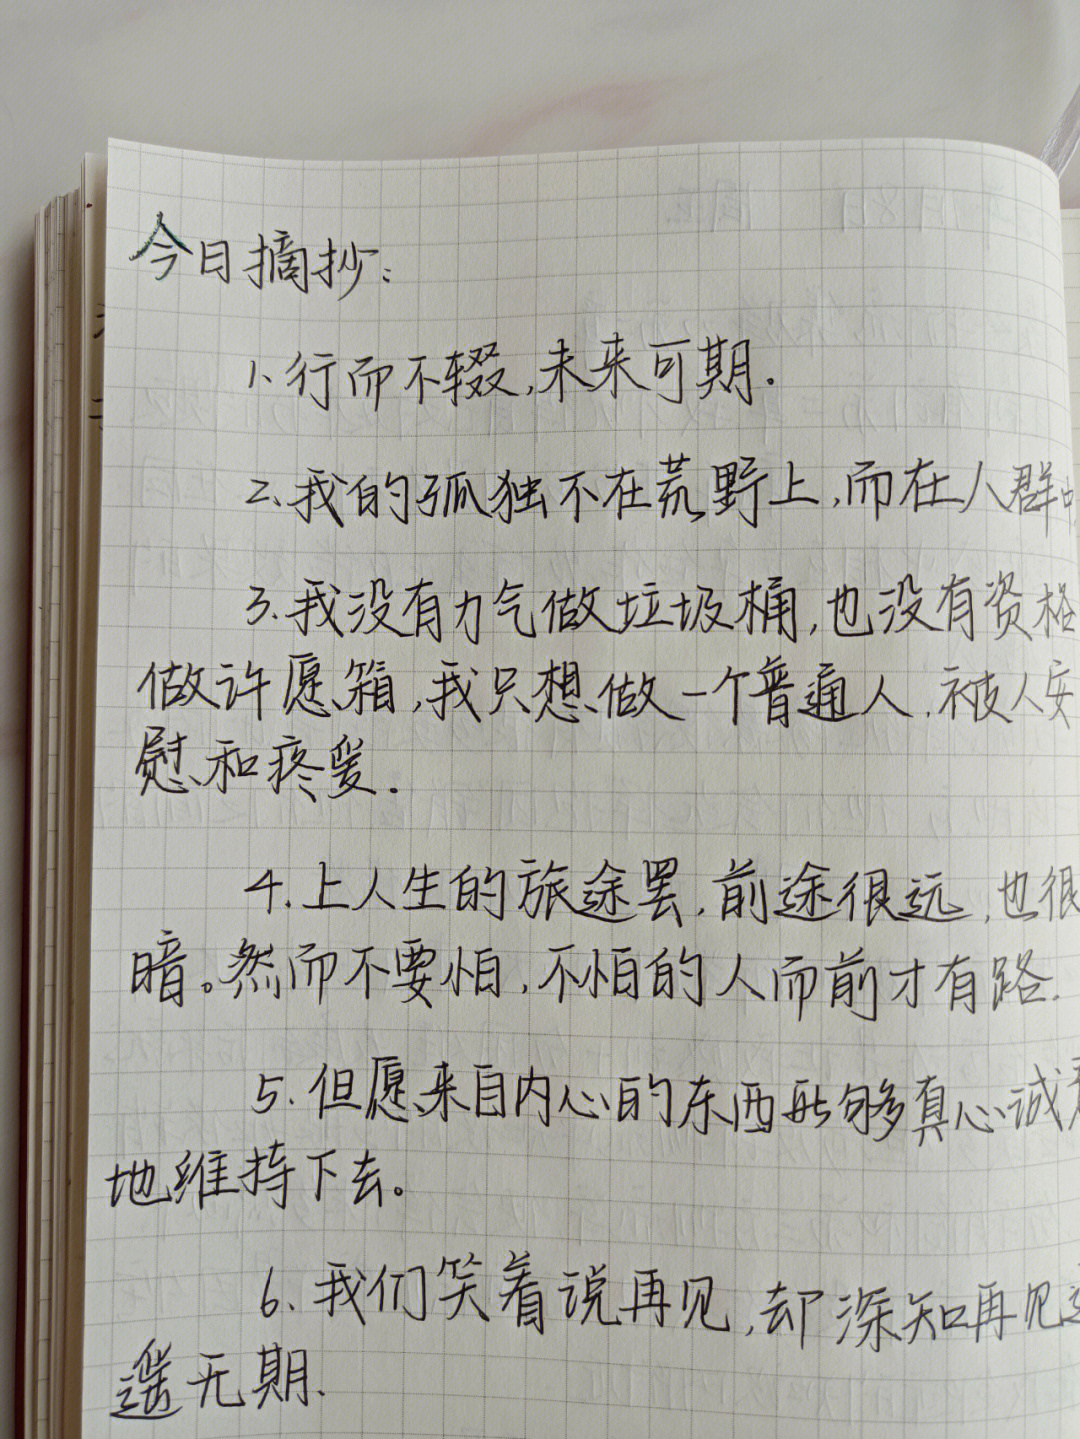 今日摘抄:
1、行而不辍,未来可期.
2、我的孤独不在荒野上,而在人群中
3.我没有力气做垃圾桶,也没有资格
做许愿箱,我只想做一个普通人,被人安
慰和疼爱.
4.上人生的旅途罢,前途很远,也很
暗。然而不要怕,不怕的人而前才有路.
5.但愿来自内心的东西能够真心诚
地维持下去。
6、我们笑着说再见,却深知再见
遥无期.